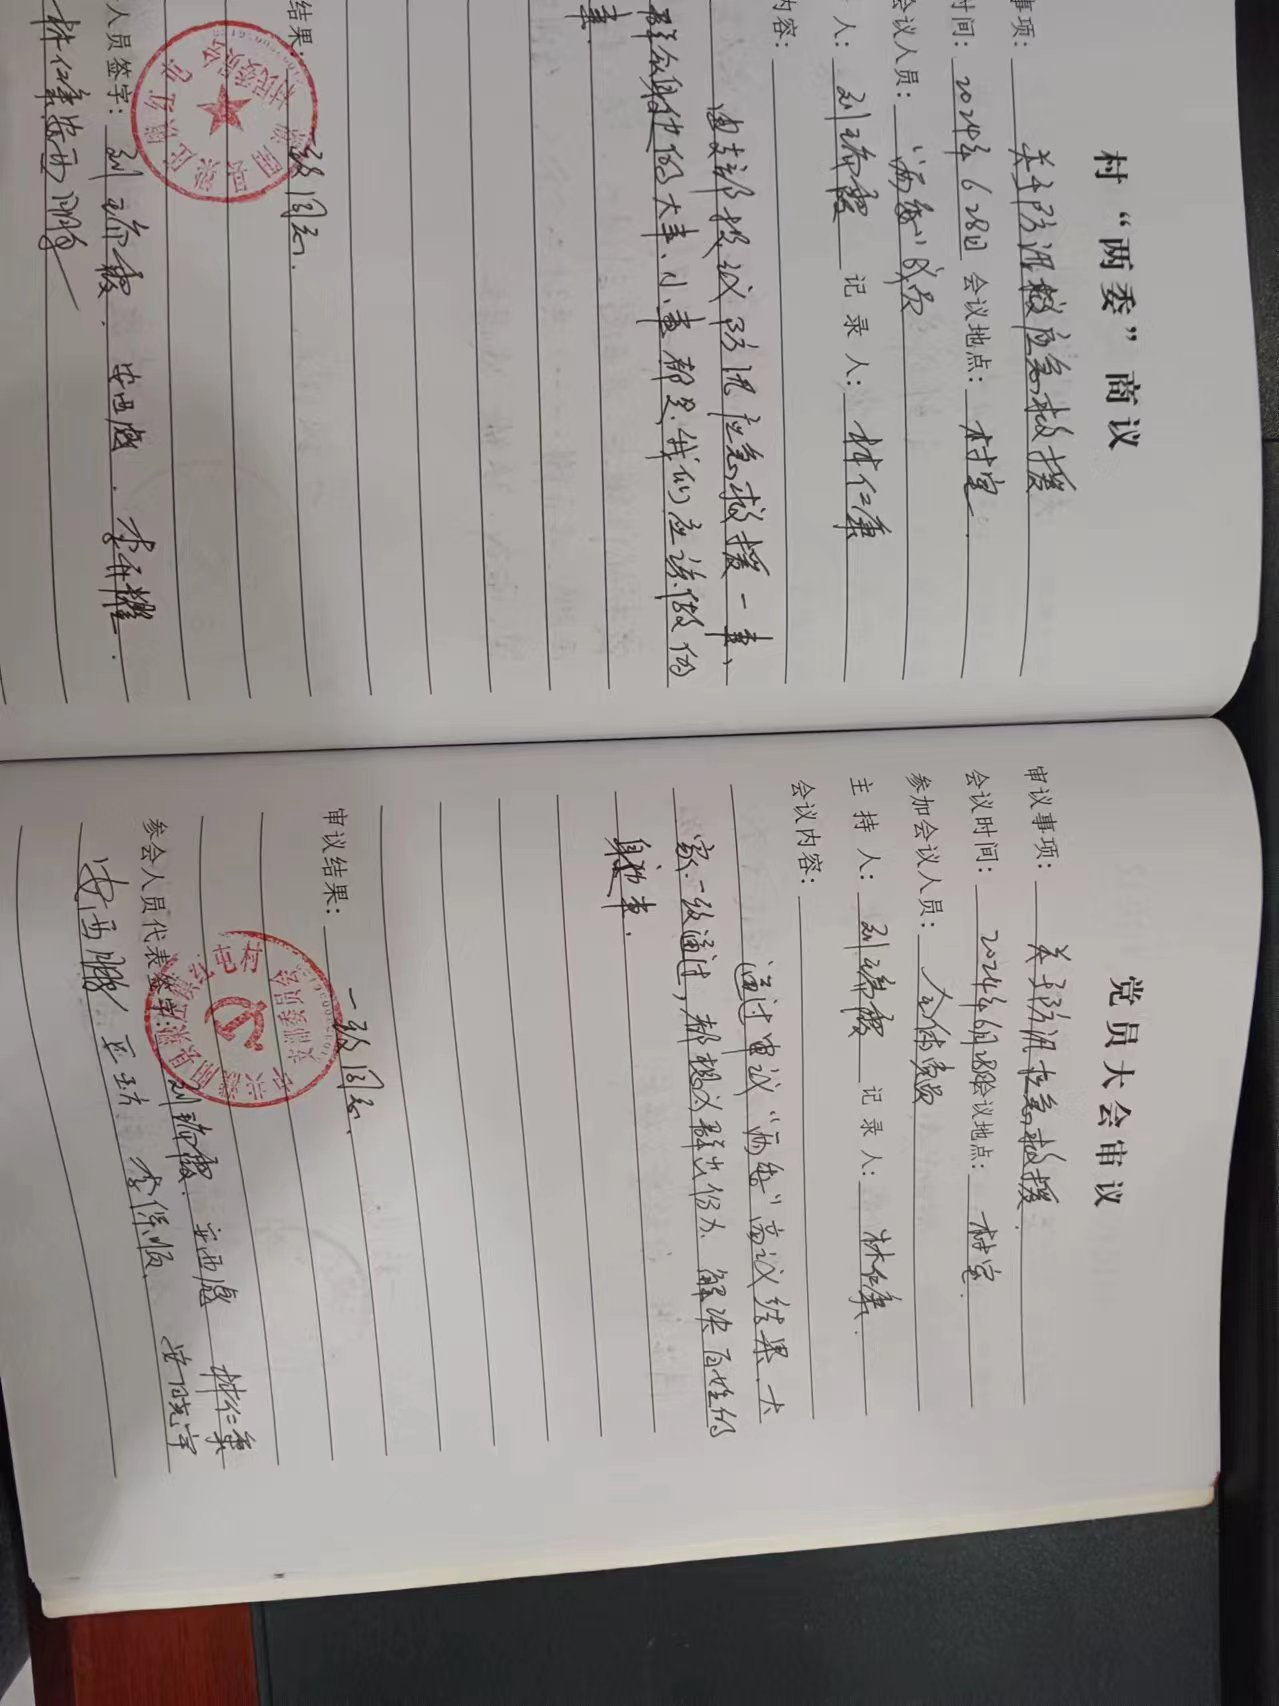 村“两委”商议
事项：关于防汛救应急救援
时间：2024年6 28日 会议地点：村室
会议人员：“两委”成员
人：刘瑞霞 记录人：林仁秉
内容：
由支部提议防汛应急救援一事、
群众身边的大事、小事都是我们应该做的
事.
结果：一致同意.
人员签字：刘瑞霞. 安西彪. 李开耀.
林仁秉 安西鹏
村民委员会
党员大会审议
审议事项：关于防汛应急救援.
会议时间：2024年6月28日会议地点：村室.
参加会议人员：全体党员
主持人：刘瑞霞 记录人：林仁秉.
会议内容：
通过审议“两委”商议结果、大
家一致通过，都想为群出份力、解决百姓的
身边事.
审议结果：一致同意、
参会人员代表签字：刘瑞霞. 安西彪 林仁秉
安西鹏 李保顺. 安晓宇